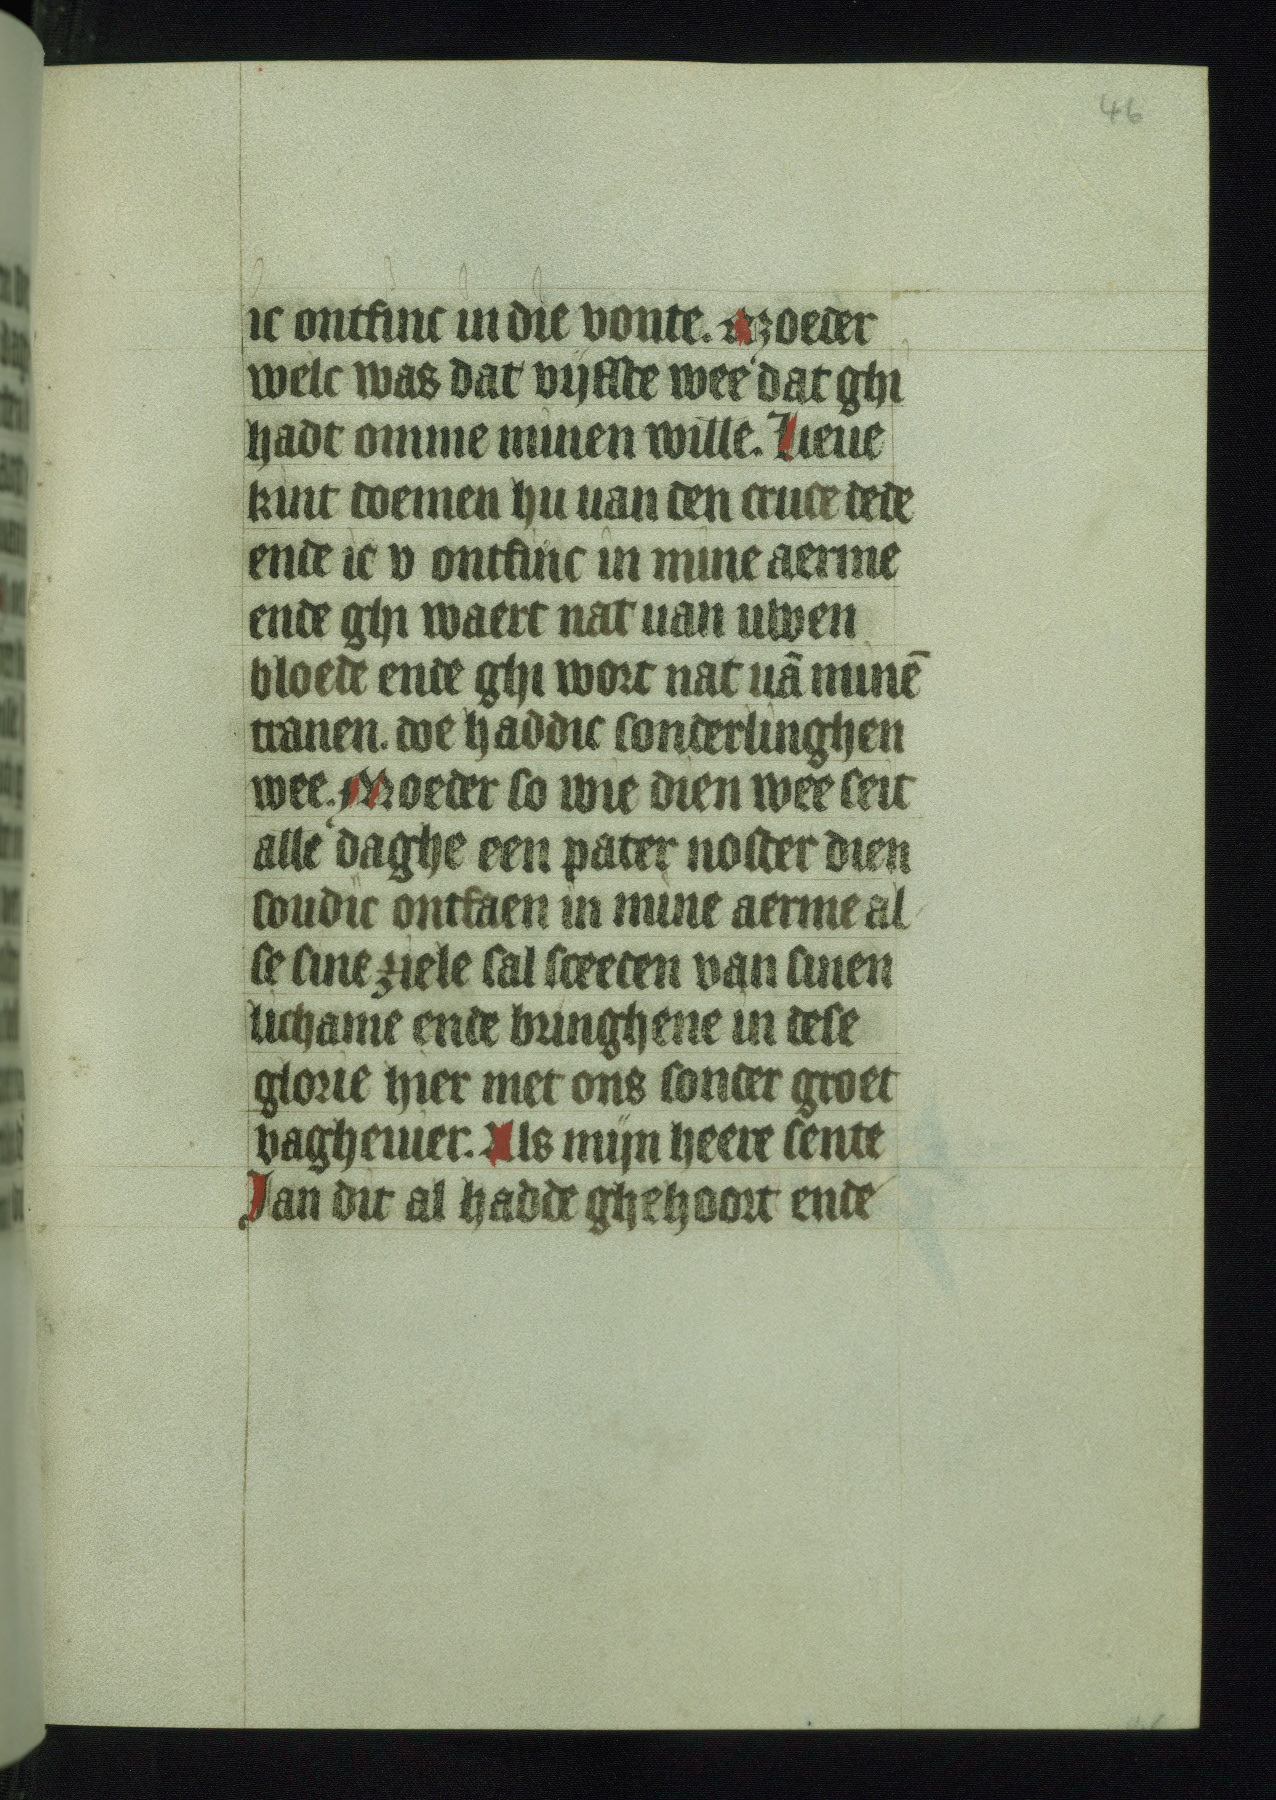 46
ic ontfinc in die vonte. Moeder
welc was dat vijfste wee dat ghi
hadt omme minen wille. Lieue
kint doemen hu uan den cruce dede
ende ic v ontfinc in mine aerme
ende ghi waert nat uan uwen
bloede ende ghi wort nat uā minē
tranen. doe haddic sonderlinghen
wee. Moeder so wie dien wee seit
alle daghe een pater noster dien
soudic ontfaen in mine aerme al
se sine ziele sal sceeden van sinen
lichame ende bringhene in dese
glorie hier met ons sonder groet
vagheuier. Als mijn heere sente
Jan dit al hadde ghehoort ende